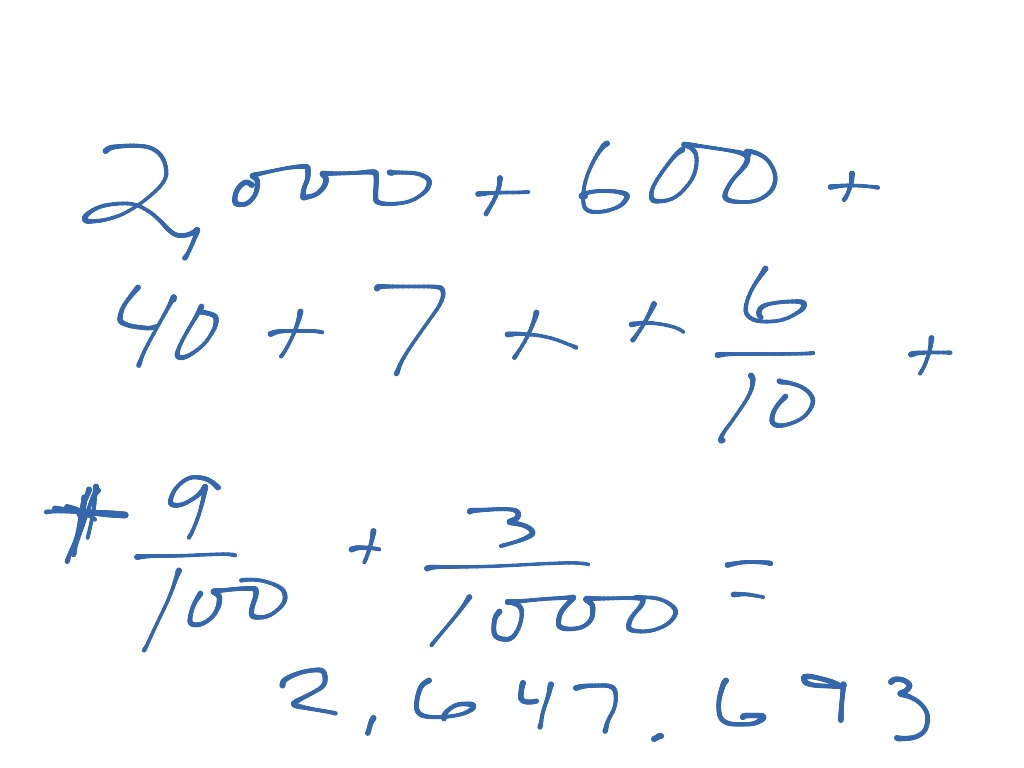 2,000 + 600 +
40 + 7 + + 6/10 +
+ 9/100 + 3/1000 =
2,647.693